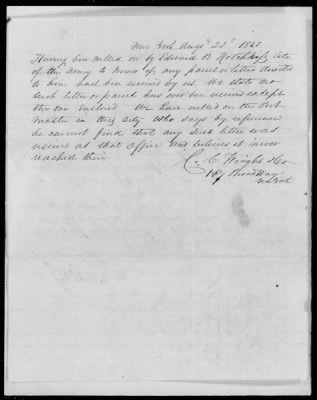 New York Augt 22d 1860
Having been called on by Edward B late
of the Army to know if any parcel or letter directed
to him had been received by us. We state no
such letter or parcel has ever been received except
the one enclosed. We have called on the Post
Master in this City who says by reference
he cannot find that any such letter was
received at that office and believes it never
reached there.
C. C. Wright & Co
Broadway
N York